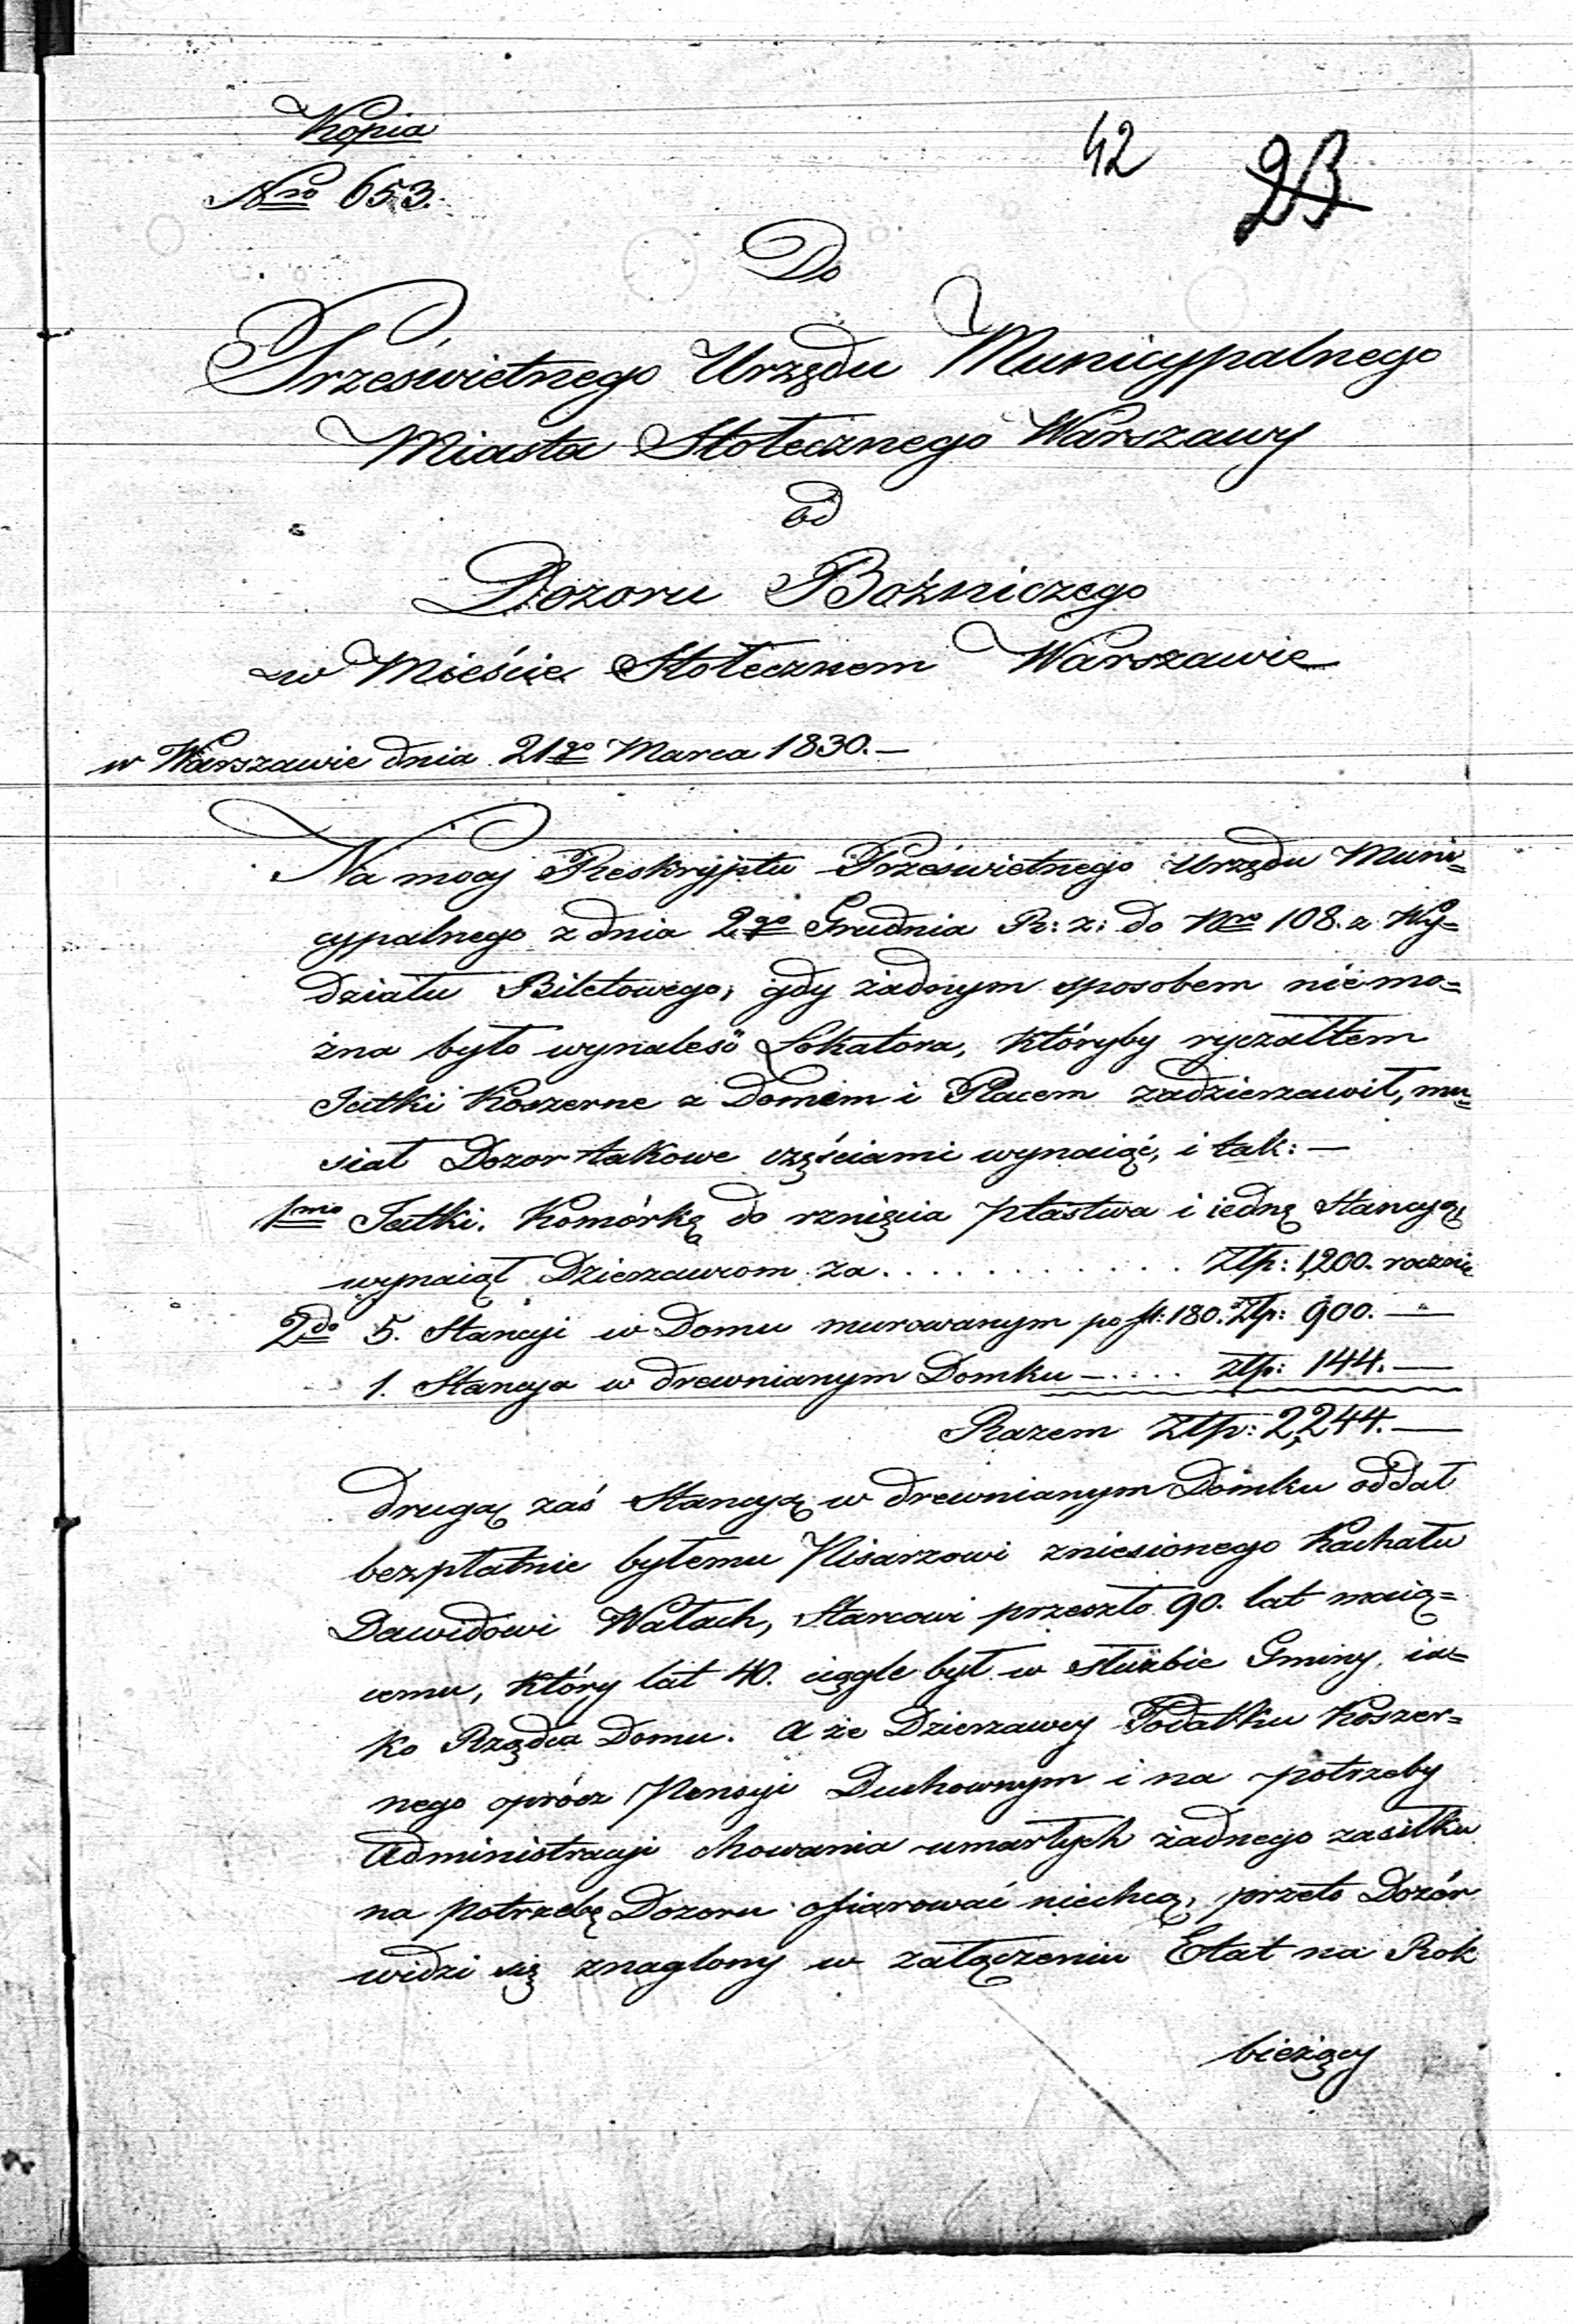 Kopia
Nro 653.
42 23
Do
Prześwietnego Urzędu Municypalnego
Miasta Stołecznego Warszawy
od
Dozoru Bożniczego
w Mieście Stołecznem Warszawie
w Warszawie dnia 21go Marca 1830.—
Na mocy Reskryptu Prześwietnego Urzędu Muni=
cypalnego z dnia 2go Grudnia R: z: do Nro 108. z Wy=
działu Biletowego, gdy żadnym sposobem niemo=
żna było wynaleść Lokatora, któryby ryczałtem
Jatki Koszerne z Domem i Placem zadzierzawił, mu=
siał Dozor takowe częściami wynaiąć, i tak: —
1mo Jatki. Komórkę do rznięcia ptastwa i iedną Stancyą
wynaiął Dzierzawcom za . . . . . . . . . . . Złp: 1,200. rocznie
2do 5. Stancyi w Domu murowanym po fl: 180. Złp: 900. — "
1. Stancya w drewnianym Domku — . . . . złp: 144. —
Razem Złp: 2,244. —
drugą zaś Stancyą w drewnianym Domku oddał
bezpłatnie byłemu Pisarzowi zniesionego Kachału
Dawidowi Wałach, Starcowi przeszło 90. lat maią=
cemu, który lat 40. ciągle był w służbie Gminy, ia=
ko Rządca Domu. A że Dzierzawcy Podatku Koszer=
nego oprócz Pensyi Duchownym i na potrzeby
Administracyi chowania umarłych żadnego zasiłku
na potrzebę Dozoru ofiarować niechcą, przeto Dozór
widzi się znaglony w załączeniu Etat na Rok
bieżący